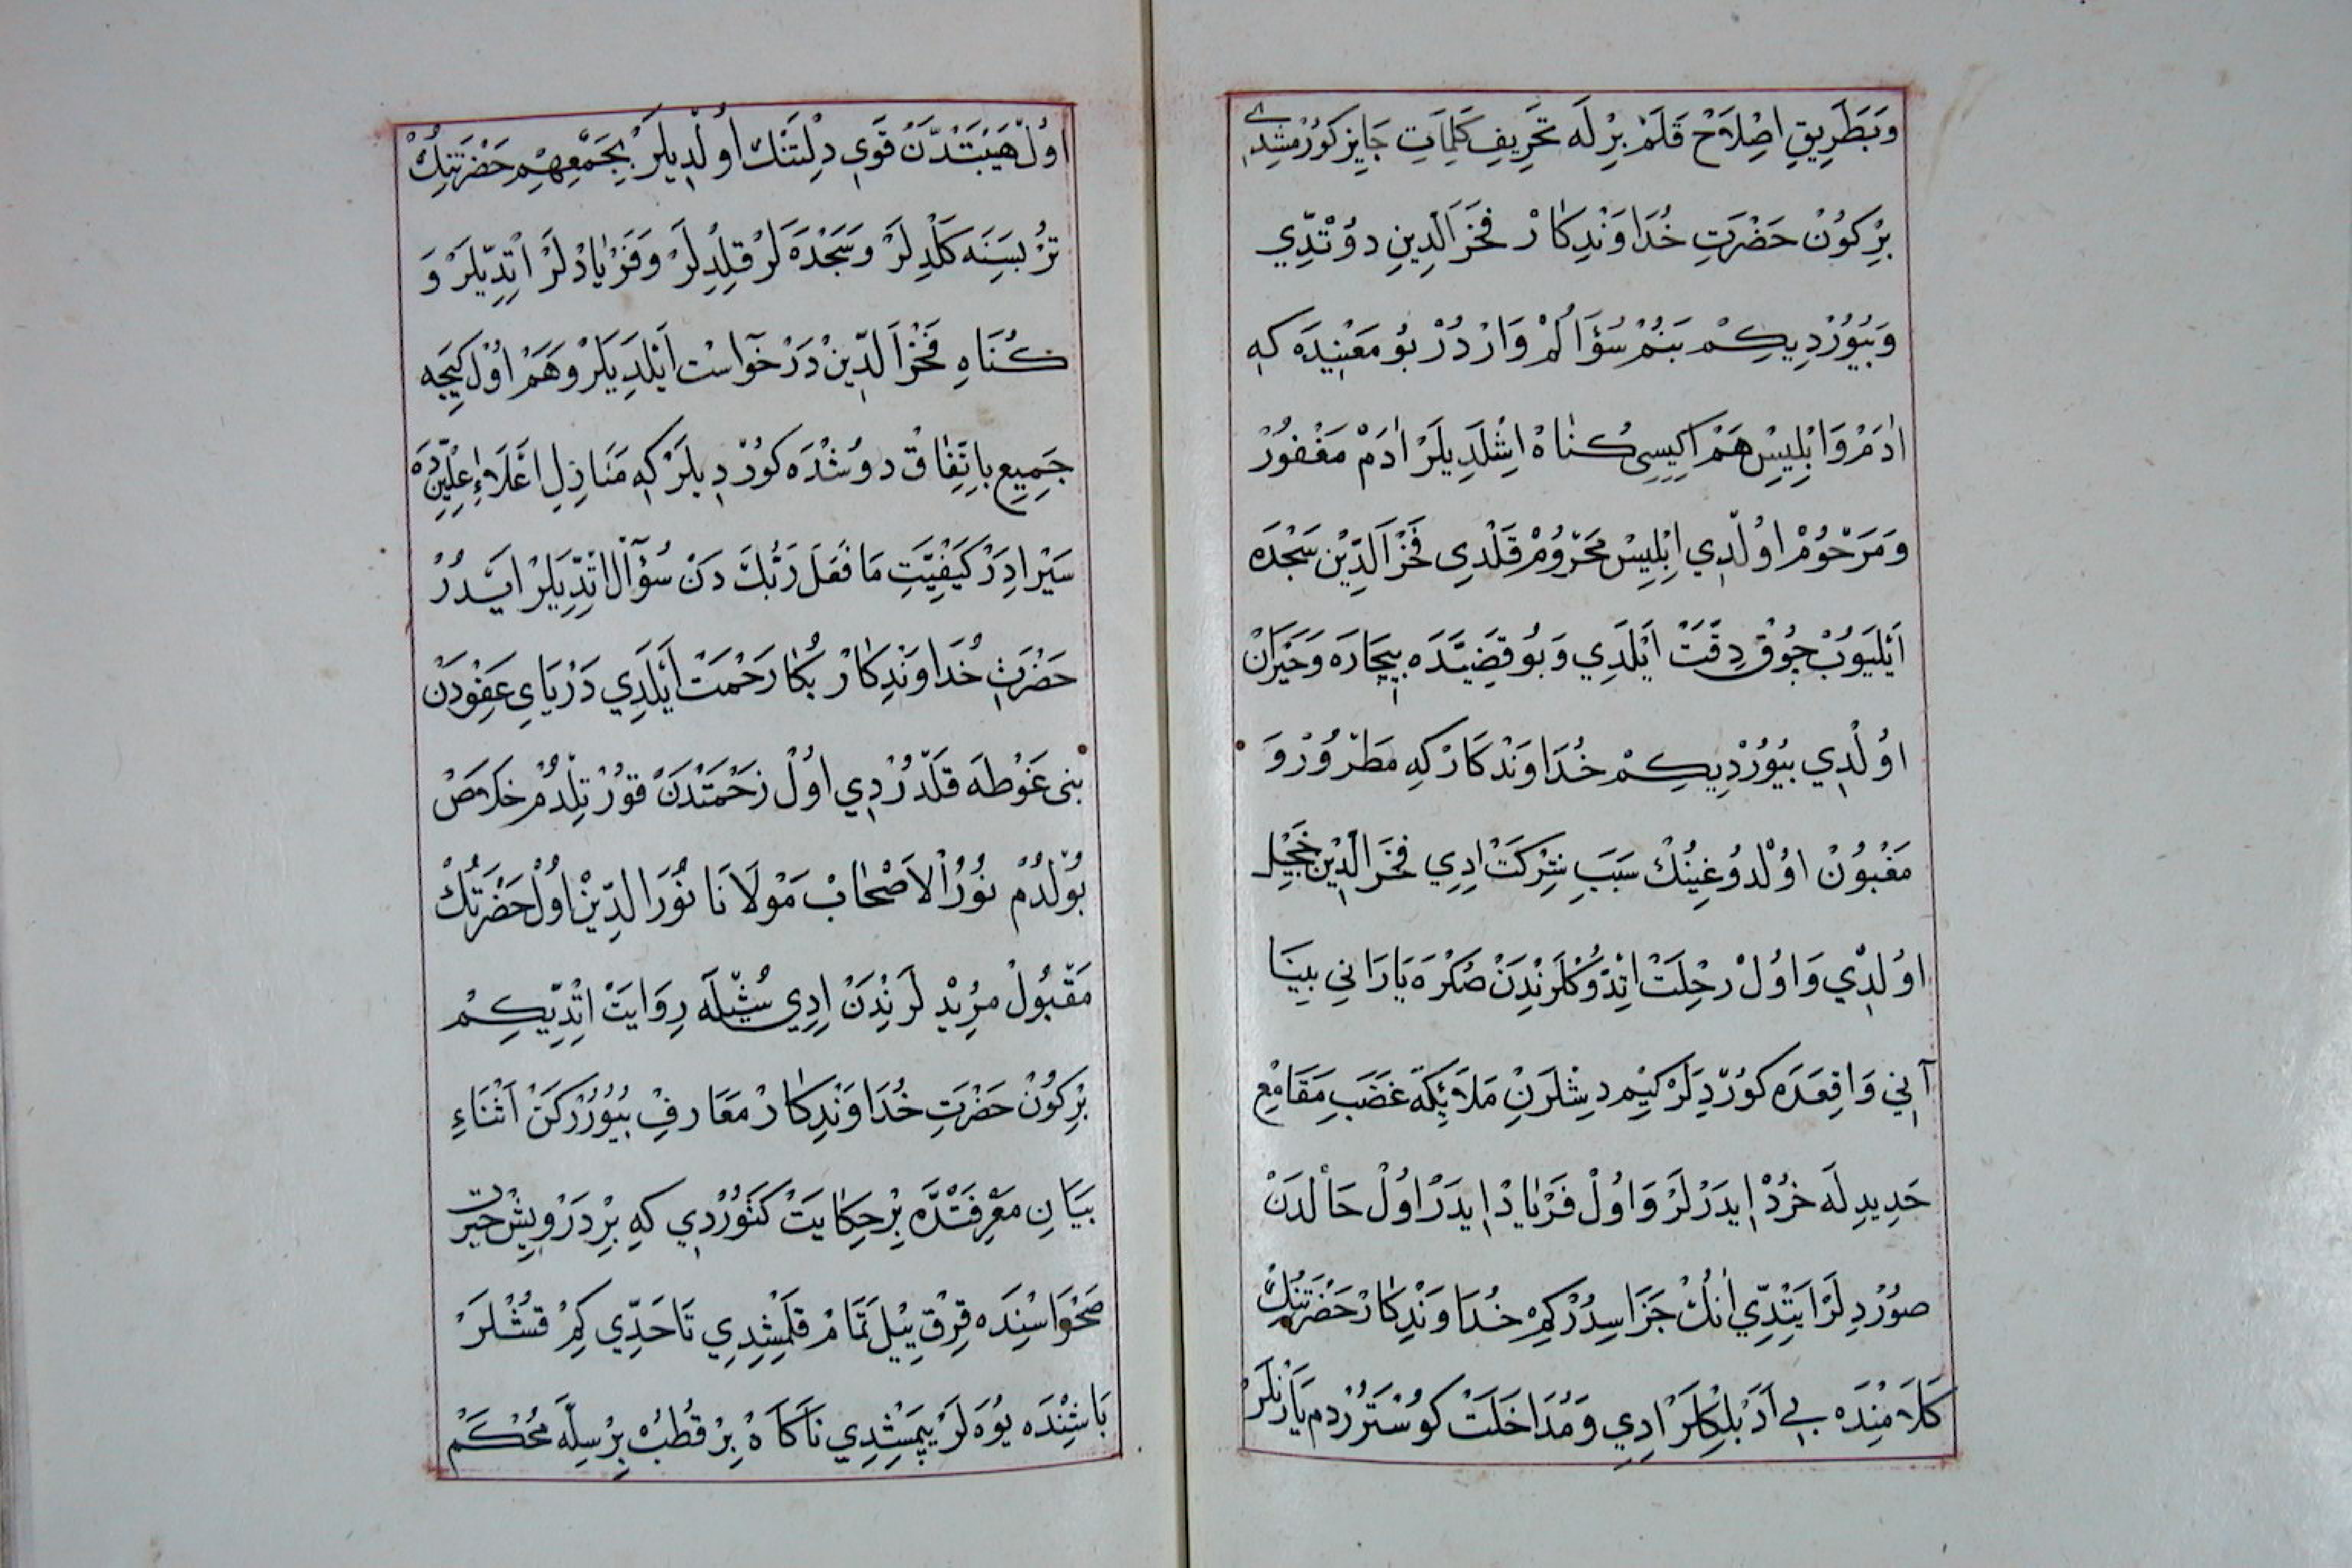 وَبَطَرِيقِ اِصْلَاحْ قَلَمْ بِرْلَه تَحْرِيفِ كَلِمَاتِ جَايِز كَورُمْشِدِي
بِرْ كُونْ حَضْرَتِ خُدَاوَنْدِكَارْ فَخْرَ الَّدِينِ دوُتْدِّي
وَبُيُورْدِيكِمْ بَنُمْ سُؤَالُمْ وَارْدُرْ بُو مَعْنِيدَه كِه
ادَمْ وَابْلِيِسْ هَمْ اِكِيسِى كُنَاهْ اِشْلَدِيلَرْ ادَمْ مَغْفُورْ
وَمَرْحُومْ اوُلْدِي اِبْلِيِسْ مَحْرُومْ قَلْدِى فَخْرَ الدِّيْن سَجْدَه
اَيْلَيوُبْ چُوقْ دِقَّتْ اَيْلَدِي وَبُو قَضِيَّدَه بِيچَارَه وَحَيْرَانْ
اوُلْدِي بُيُورْدِيكِمْ خُدَاوَنْدكَارْ كِه مَطْرُورْ وَ
مَغْبُونْ اوُلْدوُغِينُكْ سَبَبِ شِرْكَتْ اِدِي فَخْرَ الدِّيْن خَجِيلْ
اوُلدِّي وَاوُلْ رِحْلِتْ اِتْدوُكْلَرنْدِنْ صُكْرَه يَارَانِي بِينَا
آنِي وَاقِعَدَه كوُرْدِلَرْ كِيِم دِشْلَرِنِ مَلَائِكَهٔ غَضَبِ مَقَامِعِ
حَدِيدِ لَه خُرْدْ اِيدَرْلَرْ وَاوُلْ فَرْيَادْ اِيدَرْ اوُلْ حَالْدَنْ
صوُرْدِلَرْ اَيْتِدِّي اَنُكْ جَزَاسِدُرْ كِمْ خُدَاوَنْدِكَارْ حَضْرَتِنُكْ
كَلَامِنْدَه بِي اَدَبْلِكْلَرْ اِدِي وَمُدَاخَلَتْ كوُسْتَرُرْدِم يَارَنْلَرْ
اوُلْ هَيْبَتْدَنْ قَوِي دِلْتَنْك اوُلْدِيلَرْ بِجَمْعِهِمْ حَضْرَتِنِكْ
تُرْبَسِنَه كَلْدِلَرْ وَسَجْدَه لَرْ قِلْدِلَرْ وَفَرْيَادْلَرْ اِتِدّيلَرْ وَ
كُنَاهِ فَخْرَ الدِّيْن دَرْخوَآسْت اَيْلَدِيلَرْ وَهَمْ اوُلْ كِيجَه
جَمِيعِ بِاتِّفِاقْ دوُشْدَه كوُرْدِيلَرْ كِه مَنَازِلِ اَعْلَاءِ عِلِّيِّنْدَه
سَيْر اِدَرْ كَيْفِيَّتِ مَا فَعَلَ رَبُّكَ دَنْ سُؤَآلْ اِتْدِّيلَرْ ايَّدُرْ
حَضْرَتِ خُدَاوَنْدِكَارْ بُكَا رَحْمَتْ اَيْلَدِي دَرْيَايِ عَفِوْدَنْ
بنى غَوْطَه قَلْدُرْدِي اوُلْ زَحْمَتْدَنْ قوُرْتِلْدُمْ خَلَاصْ
بوُلْدُمْ نوُرُ الاَصْحَابْ مَوْلَانَا نوُرَ الدِّيْن اوُلْ حَضْرَتُكْ
مَقْبوُلْ مُرِيْدلَرنْدَنْ اِدِي شُيْلَه رِوَايَتْ اِتْدِّيكِمْ
بِرْ كُونْ حَضْرَتِ خُدَاوَنْدِكَارْ مَعَارِفْ بُيُورُرْكَنْ اَثْنَاءِ
بَيَانِ مَعْرِفَتْدَه بِرْ حِكَايَتْ كَتوُرْدِي كِه بِرْ دَرْوِيشْ حَيْرت
صَحْرَاسْنِدَه قِرْقِ يِيْل تَمَامْ قَلْمِشْدِي تَا حَدِّي كِمْ قُشْلَرْ
بَاشِنْدَه يُوَه لَرْ يَپْمِشْدِي نَاكَاهْ بِرْ قُطُبْ بِرْ سِلَّه مُحْكَمْ